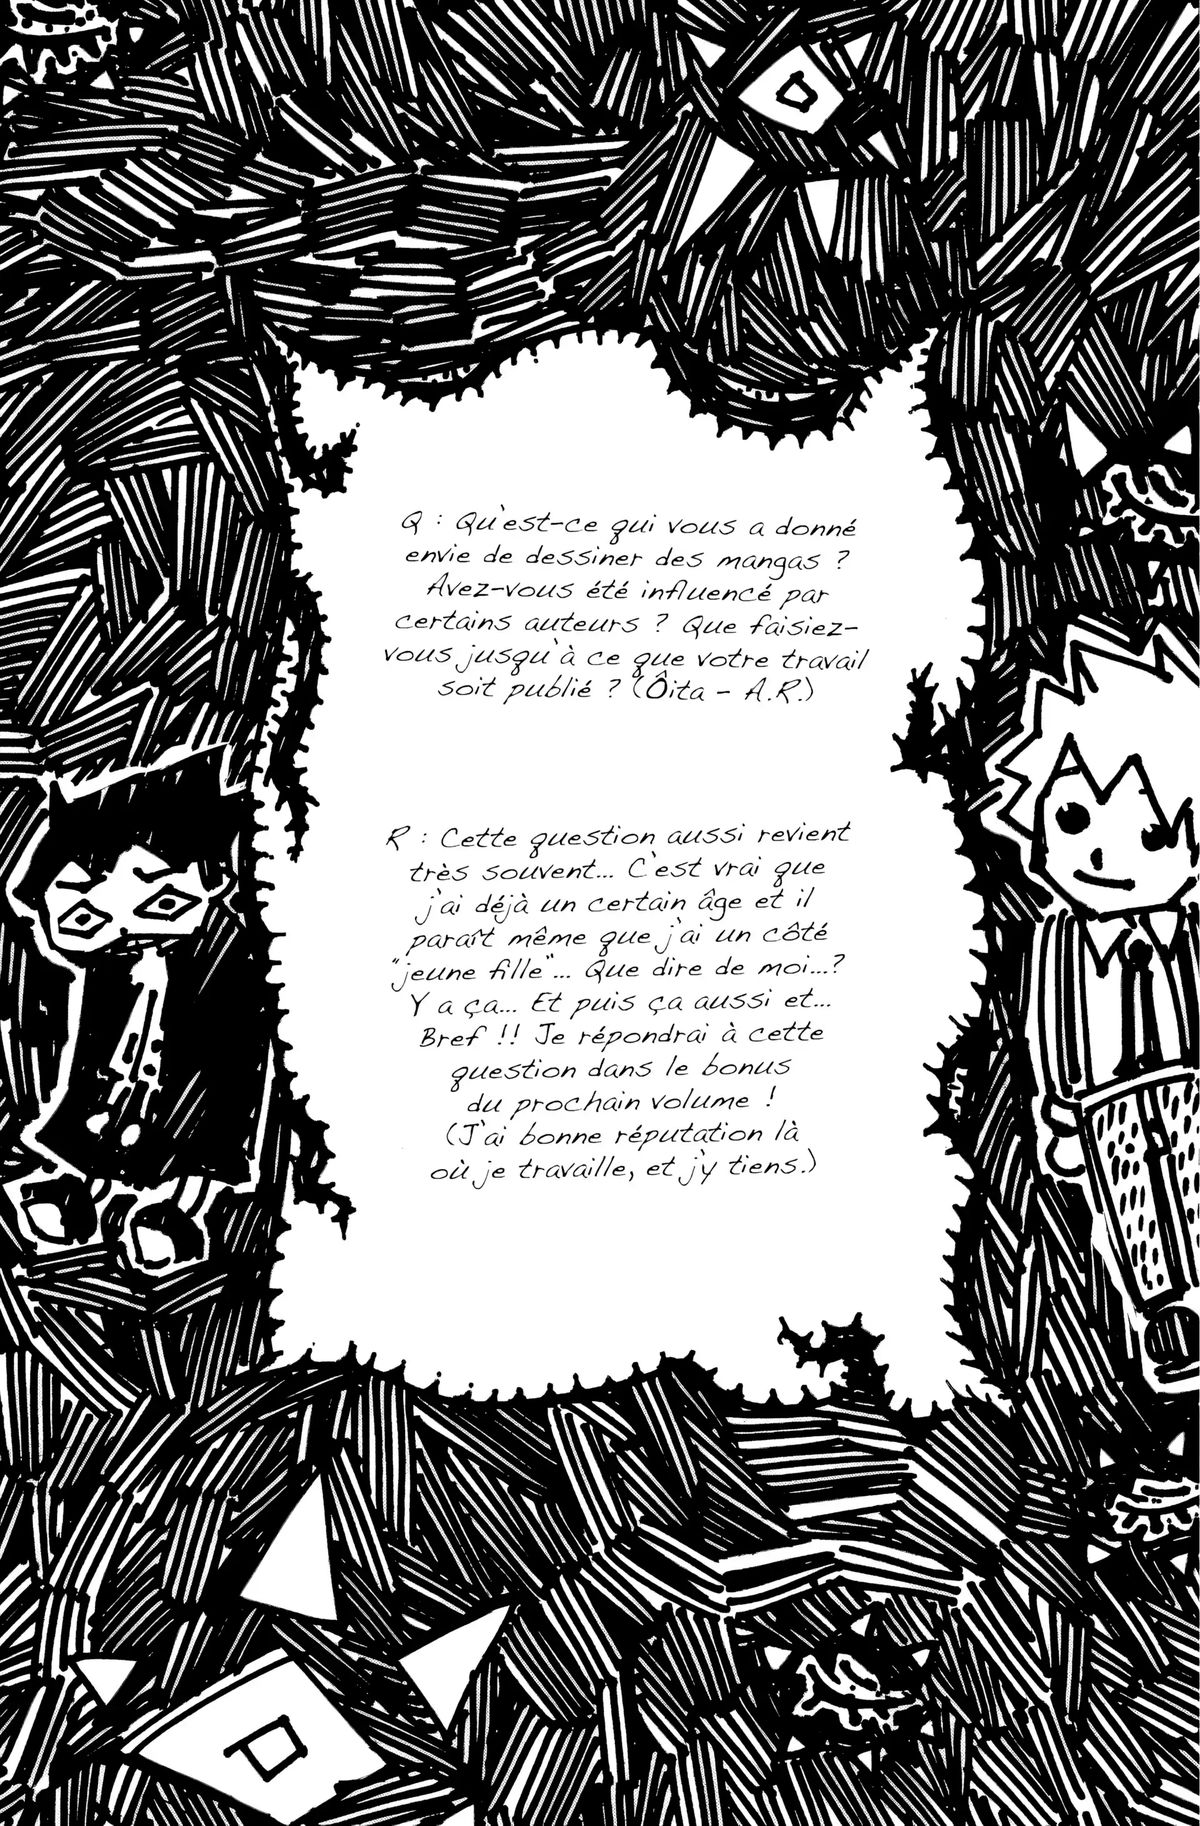 Q : Qu'est-ce qui vous a donné
envie de dessiner des mangas ?
Avez-vous été influencé par
certains auteurs ? Que faisiez-
vous jusqu'à ce que votre travail
soit publié ? (Ôita - A.R.)
R : Cette question aussi revient
très souvent... C'est vrai que
j'ai déjà un certain âge et il
paraît même que j'ai un côté
"jeune fille"... Que dire de moi...?
Y a ça... Et puis ça aussi et...
Bref !! Je répondrai à cette
question dans le bonus
du prochain volume !
(J'ai bonne réputation là
où je travaille, et j'y tiens.)